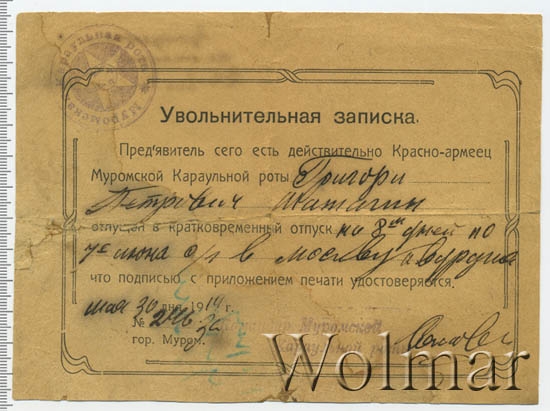 Караульная рота
Муромская
Увольнительная записка.
Пред'явитель сего есть действительно Красно-армеец
Муромской Караульной роты Григорий
Петрович Шатагин
отпущен в кратковременный отпуск на 8 дней по
7е июня с/г в Москву
что подписью с приложением печати удостоверяется.
мая 30 дня 1919 г.
№ 246
гор. Муром.
Муромской
Караульной роты
Wolmar